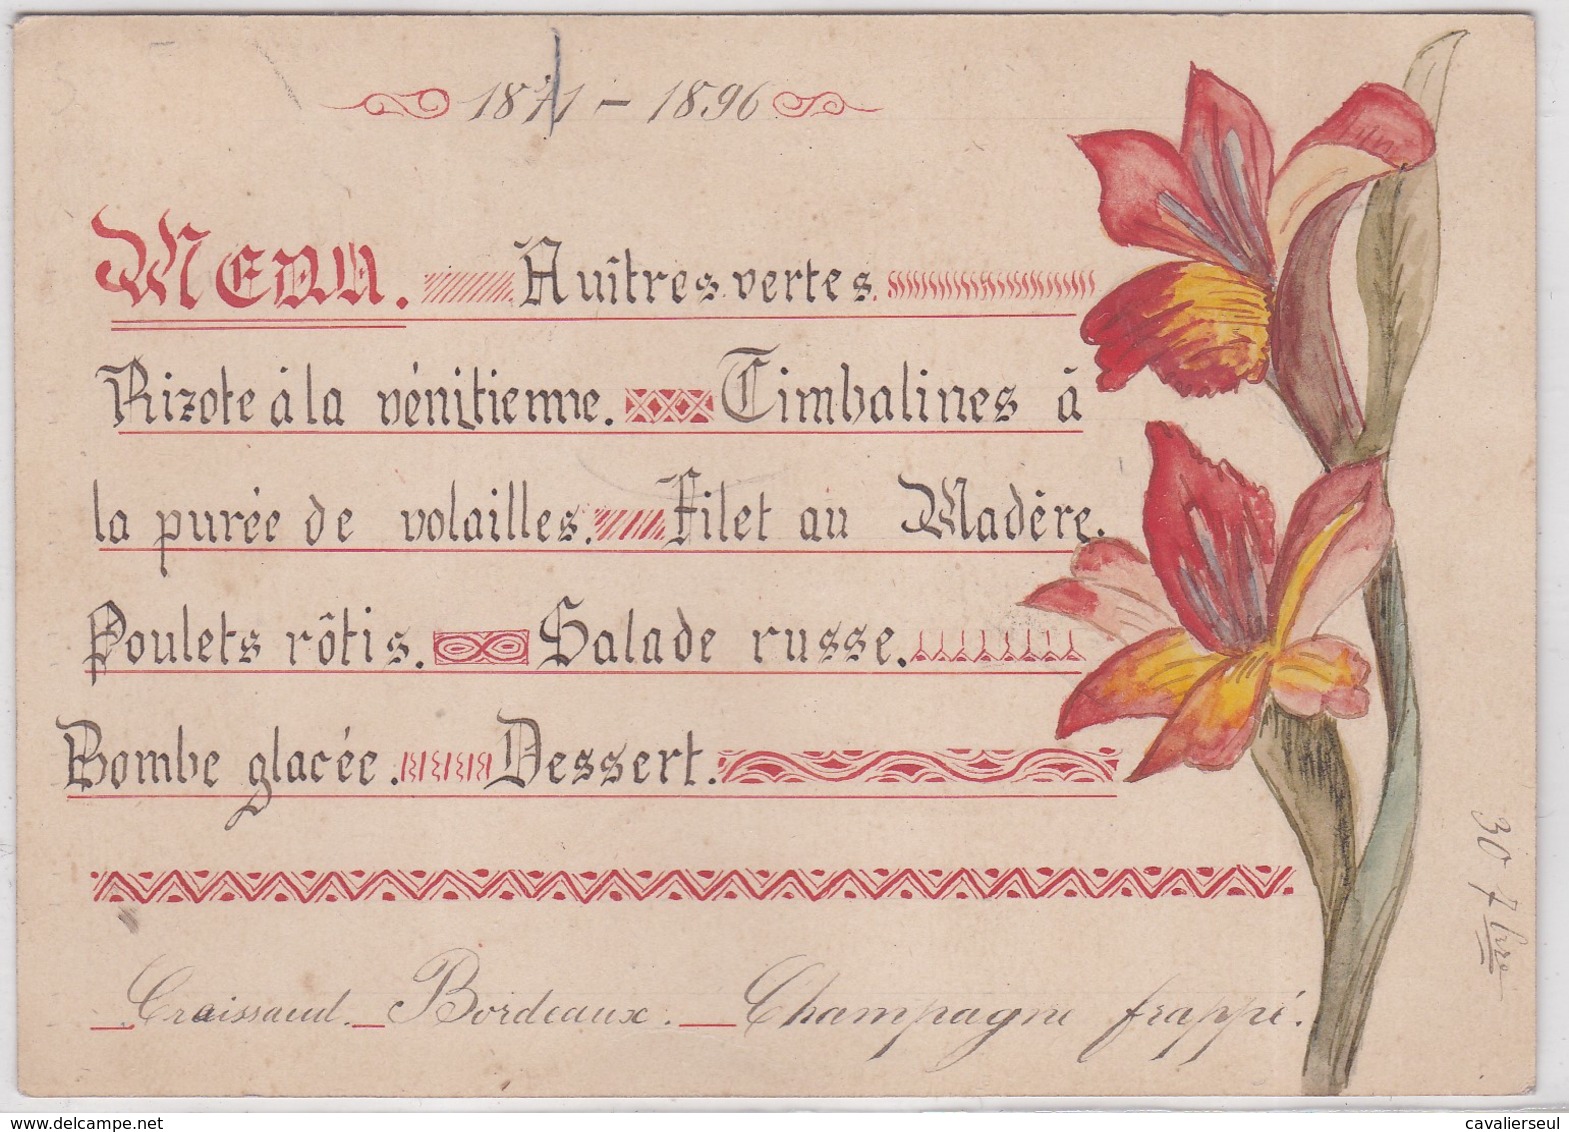 1871 - 1896
MENU. Huîtres vertes.
Rizote à la vénitienne. Timbalines à
la purée de volailles. Filet au Madère.
Poulets rôtis. Salade russe.
Bombe glacée. Dessert.
Craissaud. Bordeaux. Champagne frappé.
30 7bre
delcampe.net
cavalierseul